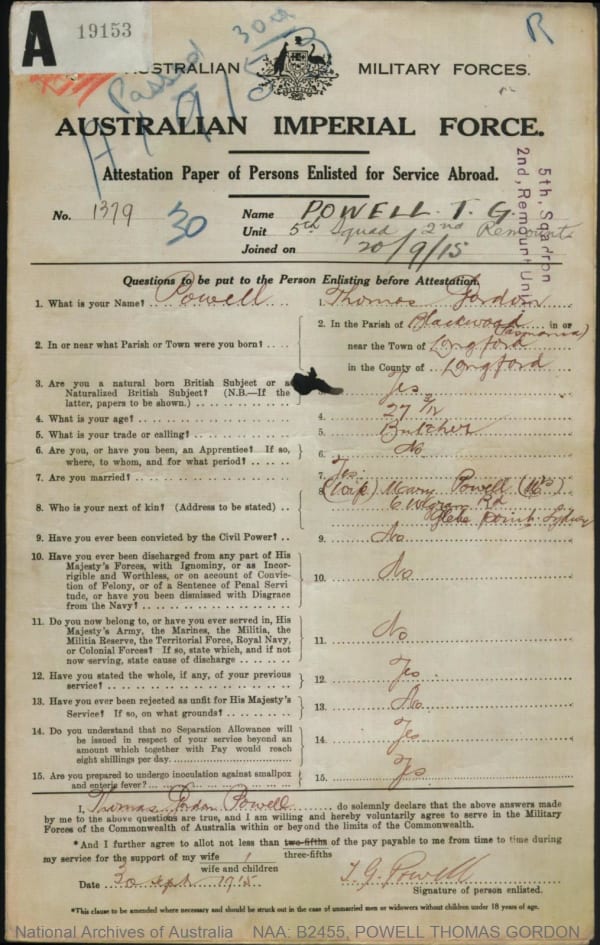 A 19153
R
Passed
30
AUSTRALIAN MILITARY FORCES.
AUSTRALIAN IMPERIAL FORCE.
Attestation Paper of Persons Enlisted for Service Abroad.
5th, Sqadron
2nd, Remount Unit
No. 1379
30
Name POWELL. T. G.
Unit 5th Squad 2nd Remounts
Joined on 20/9/15
Questions to be put to the Person Enlisting before Attestation.
1. What is your Name? Powell 1. Thomas Gordon
2. In or near what Parish or Town were you born? 2. In the Parish of Blackwood in or
(Tasmania)
near the Town of Longford
in the County of Longford
3. Are you a natural born British Subject or a
Naturalized British Subject? (N.B.—If the
latter, papers to be shown.) Yes
4. What is your age? 4. 27 2/12
5. What is your trade or calling? 5. Butcher
6. Are you, or have you been, an Apprentice? If so,
where, to whom, and for what period? 6. No
7. Are you married? 7. Yes
8. Who is your next of kin? (Address to be stated) 8. (Wife) Mary Powell (Mrs)
6 Wigram Rd
Glebe Point Sydney
9. Have you ever been convicted by the Civil Power? 9. No
10. Have you ever been discharged from any part of His
Majesty's Forces, with Ignominy, or as Incor-
rigible and Worthless, or on account of Convic-
tion of Felony, or of a Sentence of Penal Servi
tude, or have you been dismissed with Disgrace
from the Navy? 10. No
11. Do you now belong to, or have you ever served in, His
Majesty's Army, the Marines, the Militia, the
Militia Reserve, the Territorial Force, Royal Navy,
or Colonial Forces? If so, state which, and if not
now serving, state cause of discharge 11. No
12. Have you stated the whole, if any, of your previous
service? 12. Yes
13. Have you ever been rejected as unfit for His Majesty's
Service? If so, on what grounds? 13. No
14. Do you understand that no Separation Allowance will
be issued in respect of your service beyond an
amount which together with Pay would reach
eight shillings per day. 14. Yes
15. Are you prepared to undergo inoculation against smallpox
and enteric fever? 15. Yes
I, Thomas Gordon Powell do solemnly declare that the above answers made
by me to the above questions are true, and I am willing and hereby voluntarily agree to serve in the Military
Forces of the Commonwealth of Australia within or beyond the limits of the Commonwealth.
*And I further agree to allot not less than two-fifths of the pay payable to me from time to time during
three-fifths
my service for the support of my wife
wife and children
Date 30 Sept 1915 T. G. Powell
Signature of person enlisted.
*This clause to be amended where necessary and should be struck out in the case of unmarried men or widowers without children under 18 years of age.
National Archives of Australia NAA: B2455, POWELL THOMAS GORDON